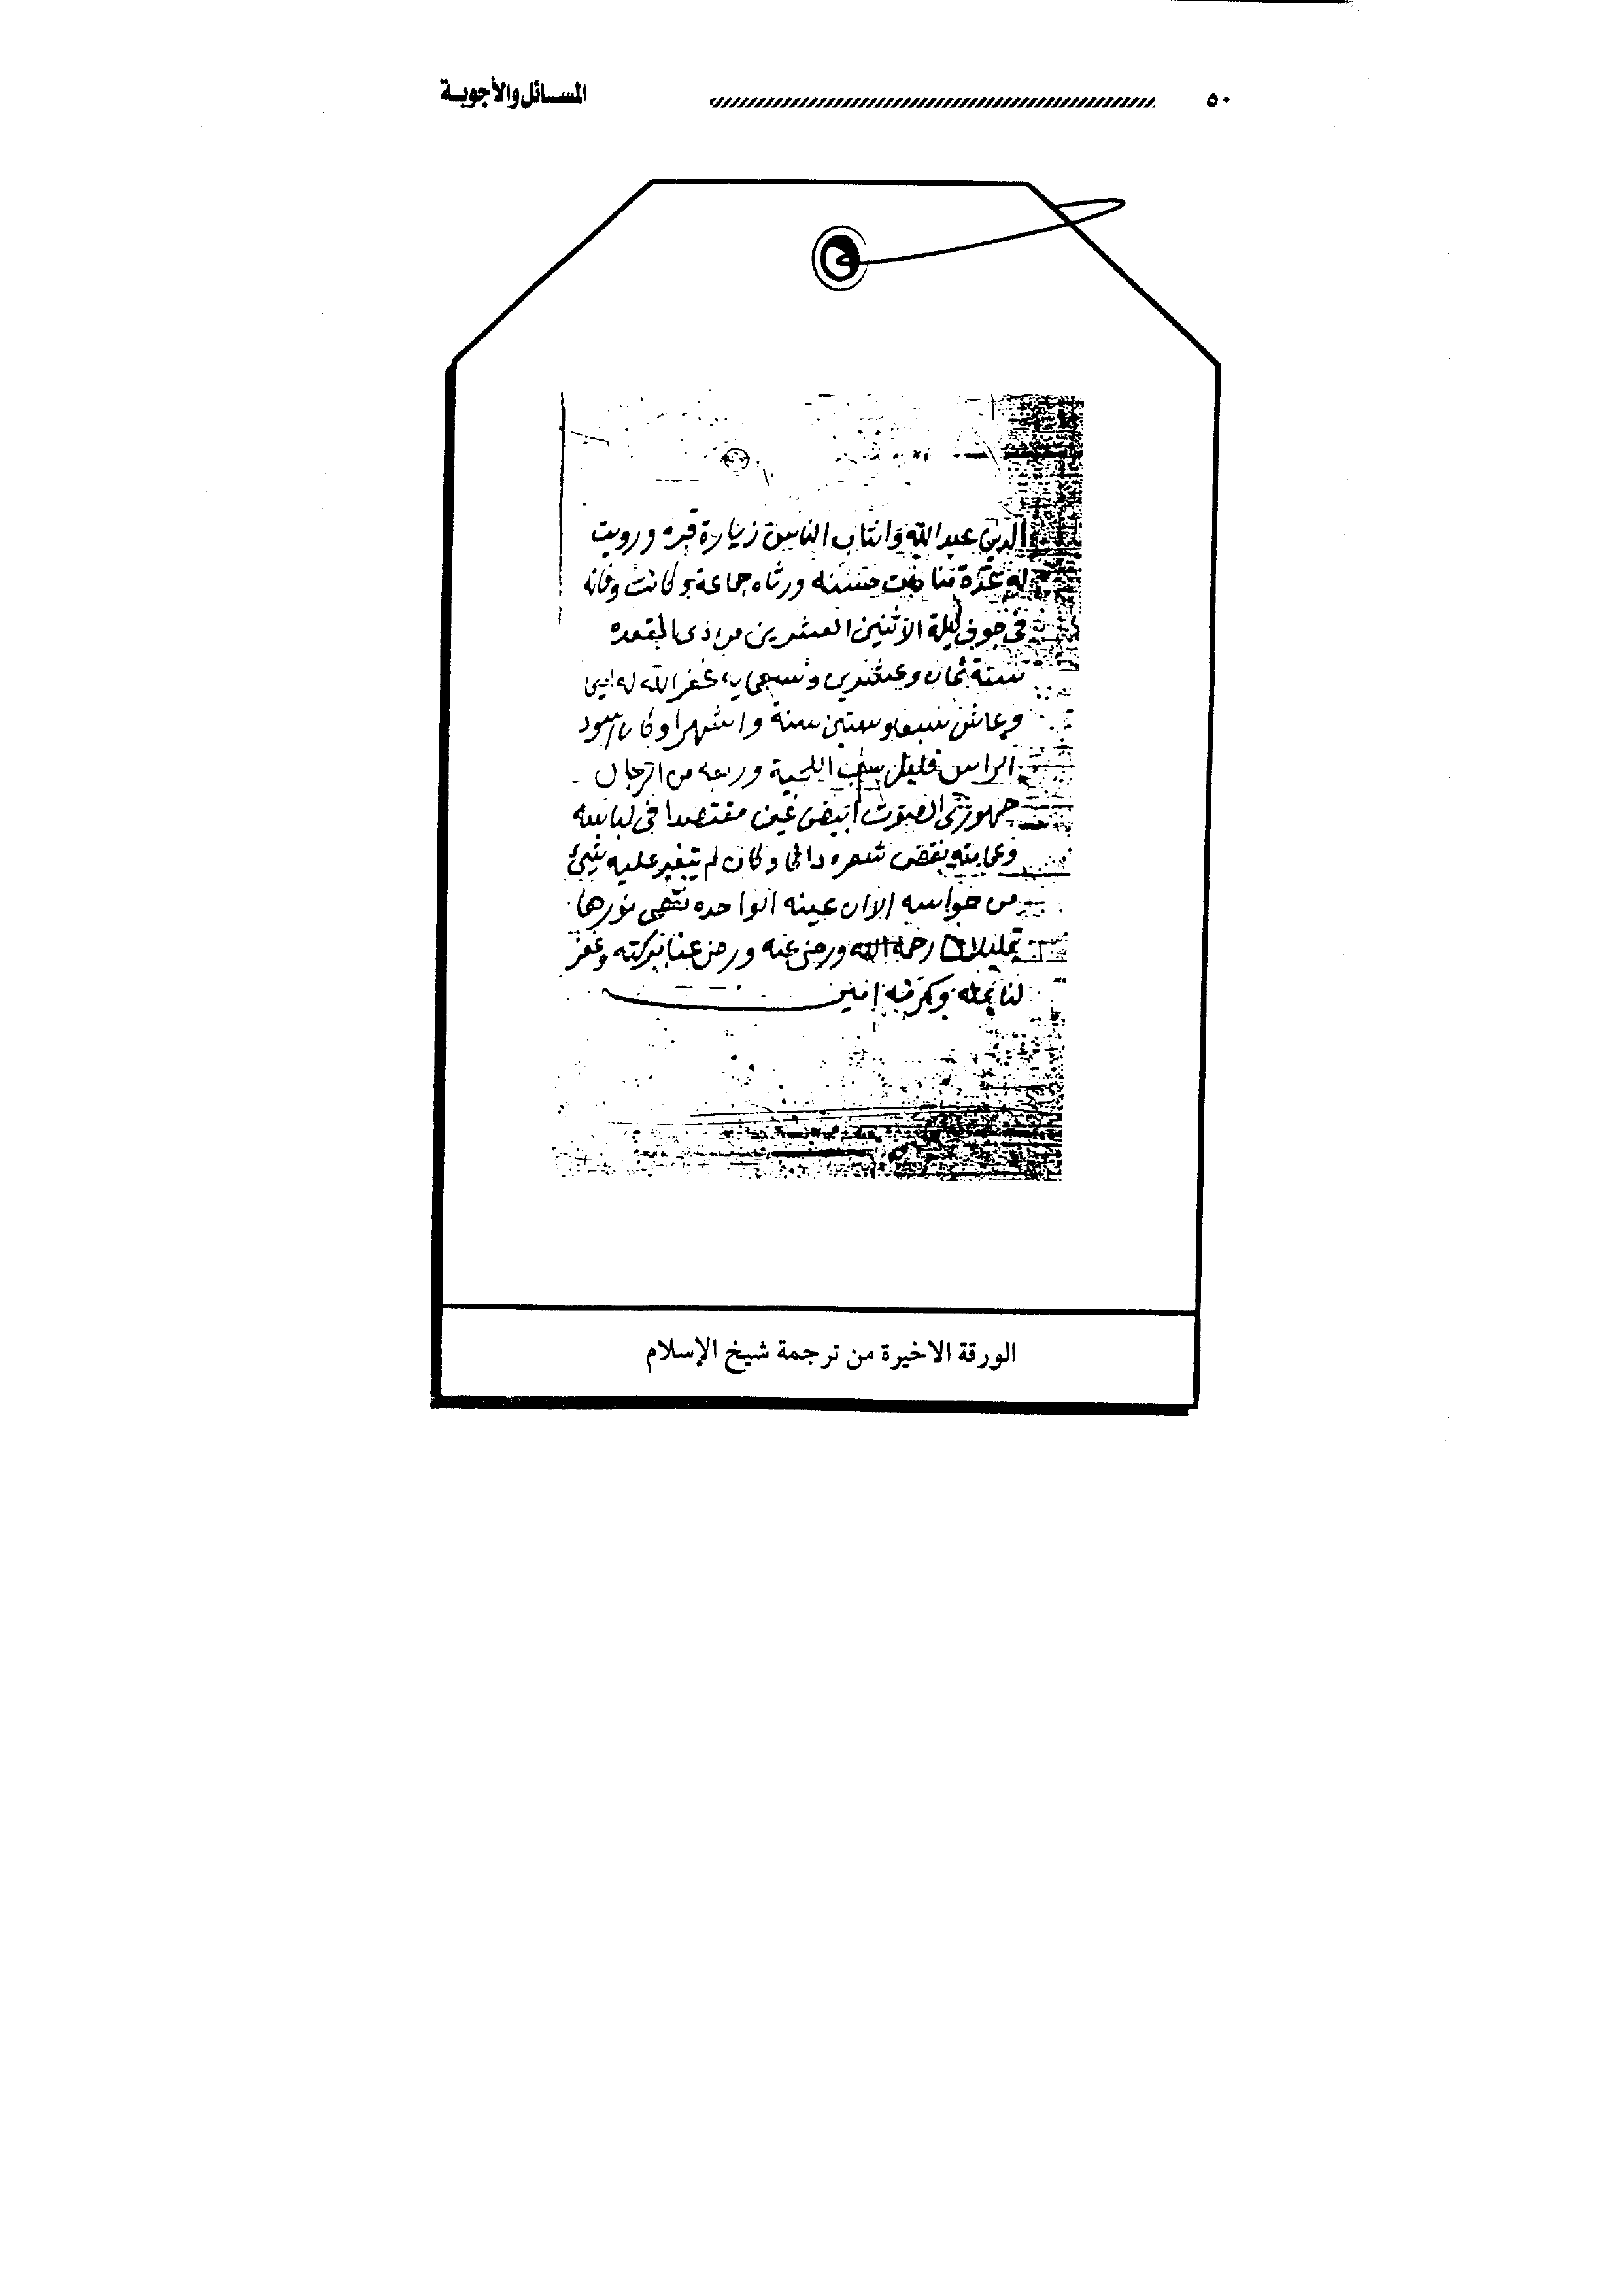 ٥٠ المسائل والأجوبة
الدين عبد الله وانتاب الناس زيارة قبره ورويت
له عدة منامات حسنه ورثاه جماعة وكانت وفاته
في جوف ليلة الاثنين العشرين من ذي القعده
سنة ثمان وعشرين وسبعمايه غفر الله له
وعاش سبعا وستين سنة واشهرا وكان اسود
الراس قليل شيب اللحية وربعه من الرجال
جهوري الصوت ابيض مقتصدا في لباسه
وعمامته شعره وكان لم يتغير عليه شيئ
من حواسه الا ان عينه الواحده نورها
قليلا رحمه الله ورضي عنه ورضي عنا ببركته وغفر
لنا وكرمه امين
الورقة الاخيرة من ترجمة شيخ الإسلام